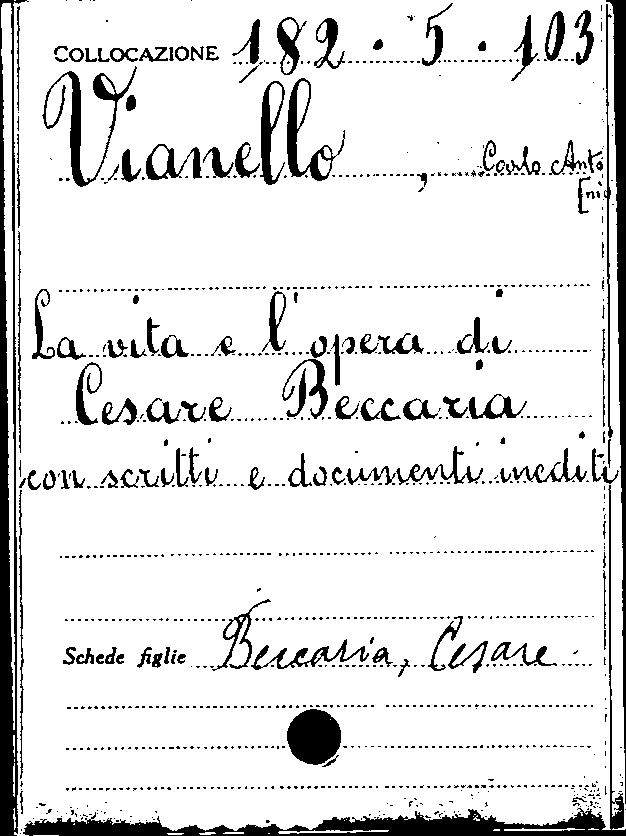 COLLOCAZIONE 182.5.103
Vianello, Carlo Anto
[nio
La vita e l'opera di
Cesare Beccaria
con scritti e documenti inediti
Schede figlie Beccaria, Cesare